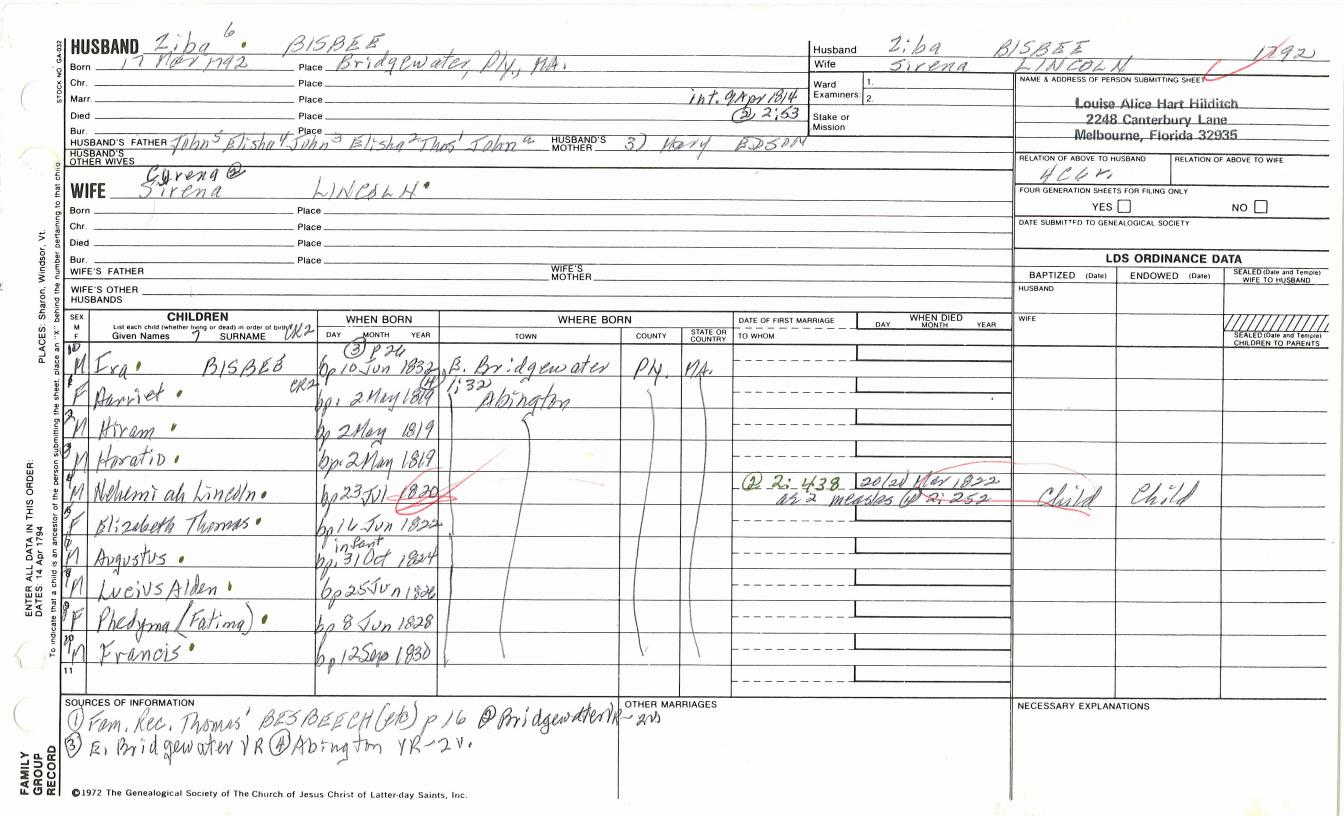 STOCK NO. GA-032
HUSBAND Ziba 6 BISBEE
Born 17 Mar 1792 Place Bridgewater, Ply., MA.
Chr. Place
Marr. Place int. 9 Apr 1814
Died Place ② 2:53
Bur. Place
HUSBAND'S FATHER John 5 Elisha 4 John 3 Elisha 2 Thos 1 John a HUSBAND'S MOTHER 3) Mary EDSON
HUSBAND'S OTHER WIVES
Husband Ziba BISBEE 1792
Wife Sirena LINCOLN
Ward Examiners 1.
2.
Stake or Mission
NAME & ADDRESS OF PERSON SUBMITTING SHEET
Louise Alice Hart Hilditch
2248 Canterbury Lane
Melbourne, Florida 32935
RELATION OF ABOVE TO HUSBAND RELATION OF ABOVE TO WIFE
FOUR GENERATION SHEETS FOR FILING ONLY
YES NO
DATE SUBMITTED TO GENEALOGICAL SOCIETY
Cyrena ②
WIFE Sirena LINCOLN
Born Place
Chr. Place
Died Place
Bur. Place
WIFE'S FATHER WIFE'S MOTHER
WIFE'S OTHER HUSBANDS
LDS ORDINANCE DATA
BAPTIZED (Date) ENDOWED (Date) SEALED (Date and Temple) WIFE TO HUSBAND
HUSBAND
WIFE
SEALED (Date and Temple) CHILDREN TO PARENTS
SEX M F
CHILDREN
List each child (whether living or dead) in order of birth
Given Names SURNAME CR2
WHEN BORN
DAY MONTH YEAR
WHERE BORN
TOWN COUNTY STATE OR COUNTRY
DATE OF FIRST MARRIAGE
TO WHOM
WHEN DIED
DAY MONTH YEAR
③ p 26
M Ira BISBEE bp 10 Jun 1832 E. Bridgewater Ply. MA.
1 F Harriet CR2 bp. 2 May 1819 ④ 1:32 Abington
2 M Hiram bp 2 May 1819
3 M Horatio bp. 2 May 1819
4 M Nehemiah Lincoln bp 23 Jul 1820 ② 2: 438 20/21 Mar 1822
ae 2 measles ② 2:252 Child Child
F Elizabeth Thomas bp 16 Jun 1822
infant
7 M Augustus bp. 31 Oct 1824
8 M Lucius Alden bp 25 Jun 1826
9 F Phedyma (Fatima) bp 8 Jun 1828
10 M Francis bp 12 Sep 1830
11
SOURCES OF INFORMATION
① Fam. Rec. Thomas' BESBEECH (etc) p 16 ② Bridgewater VR-2v
③ E. Bridgewater VR ④ Abington VR-2v.
OTHER MARRIAGES
NECESSARY EXPLANATIONS
©1972 The Genealogical Society of The Church of Jesus Christ of Latter-day Saints, Inc.
FAMILY GROUP RECORD
ENTER ALL DATA IN THIS ORDER:
DATES: 14 Apr 1794 PLACES: Sharon, Windsor, Vt.
To indicate that a child is an ancestor of the person submitting the sheet, place an "X" behind the number pertaining to that child.